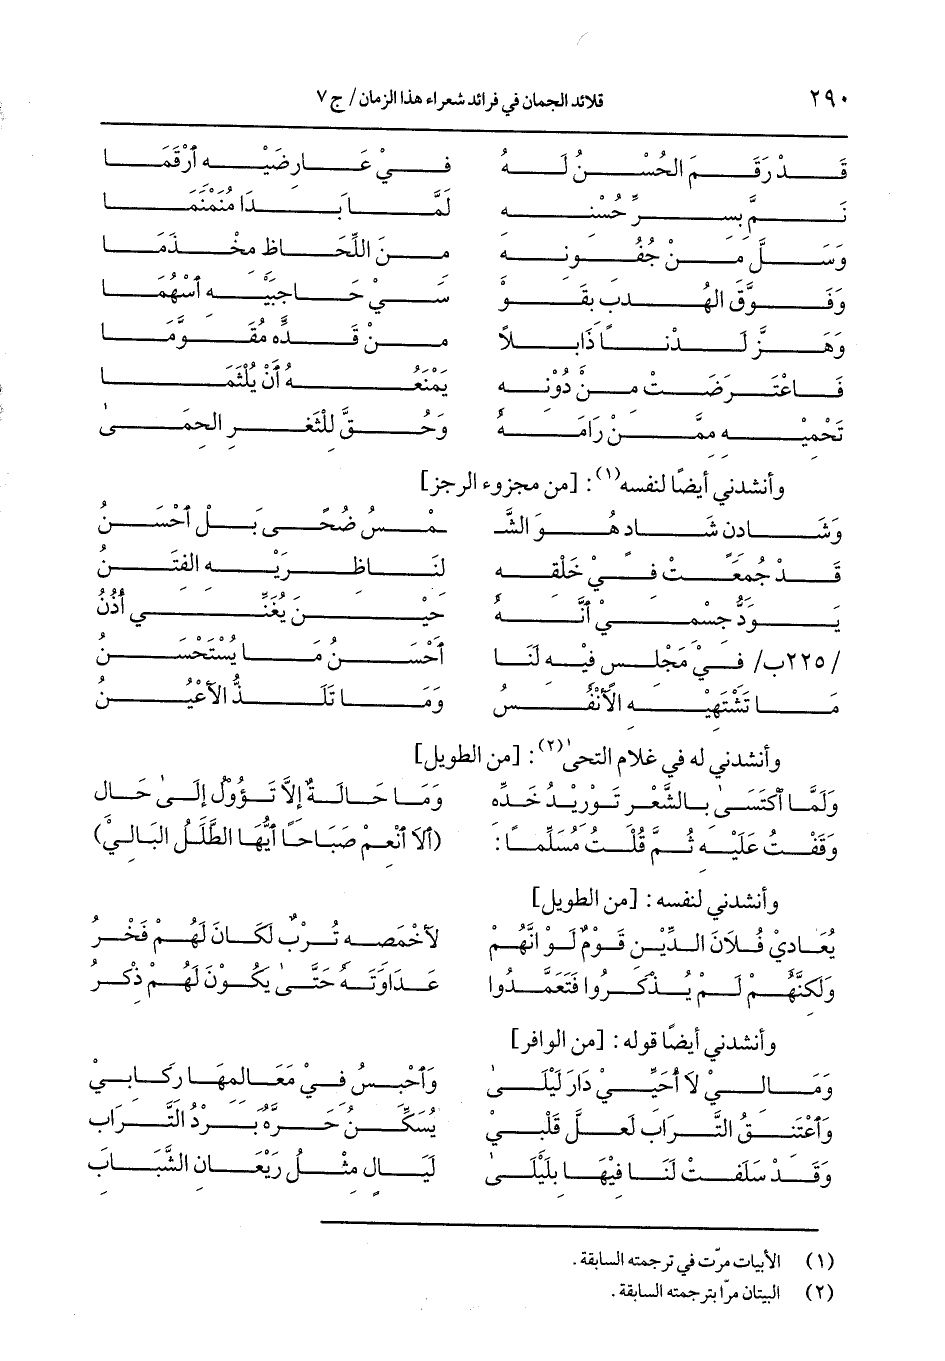 ٢٩٠ قلائد الجمان في فرائد شعراء هذا الزمان / ج ٧
قَدْ رَقَمَ الحُسْنُ لَهُ فِيْ عَارِضَيْهِ أَرْقَمَا
نَمَّ بِسِرِّ حُسْنِهِ لَمَّا بَدَا مُنَمْنَمَا
وَسَلَّ مِنْ جُفُونِهِ مِنَ اللِّحَاظِ مِخْذَمَا
وَفَوَّقَ الهُدْبَ بِقَوْ سَيْ حَاجِبَيْهِ أَسْهُمَا
وَهَزَّ لَدْنًا ذَابِلاً مِنْ قَدِّهِ مُقَوَّمَا
فَاعْتَرَضَتْ مِنْ دُوْنِهِ يَمْنَعُهُ أَنْ يُلْثَمَا
تَحْمِيْهِ مِمَّنْ رَامَهُ وَحُقَّ لِلثَّغْرِ الحِمَىٰ
وأنشدني أيضًا لنفسه(١): [من مجزوء الرجز]
وَشَادِنٍ شَادٍ هُوَ الشَّـ ـمْسُ ضُحًى بَلْ أَحْسَنُ
قَدْ جُمِعَتْ فِيْ خَلْقِهِ لِنَاظِرَيْهِ الفِتَنُ
يَوَدُّ جِسْمِيْ أَنَّهُ حِيْنَ يُغَنِّي أُذُنُ
/٢٢٥ب/ فِيْ مَجْلِسٍ فِيْهِ لَنَا أَحْسَنُ مَا يُسْتَحْسَنُ
مَا تَشْتَهِيْهِ الأَنْفُسُ وَمَا تَلَذُّ الأَعْيُنُ
وأنشدني له في غلام التحىٰ(٢): [من الطويل]
وَلَمَّا اكْتَسَىٰ بِالشَّعْرِ تَوْرِيْدُ خَدِّهِ وَمَا حَالَةٌ إِلاَّ تَؤُوْلُ إِلَىٰ حَالِ
وَقَفْتُ عَلَيْهِ ثُمَّ قُلْتُ مُسَلِّمًا: (أَلاَ أَنْعِمْ صَبَاحًا أَيُّهَا الطَّلَلُ البَالِيْ)
وأنشدني لنفسه: [من الطويل]
يُعَادِيْ فُلاَنَ الدِّيْنِ قَوْمٌ لَوْ أَنَّهُمْ لأَخْمَصِهِ تُرْبٌ لَكَانَ لَهُمْ فَخْرُ
وَلَكِنَّهُمْ لَمْ يُذْكَرُوا فَتَعَمَّدُوا عَدَاوَتَهُ حَتَّىٰ يَكُوْنَ لَهُمْ ذِكْرُ
وأنشدني أيضًا قوله: [من الوافر]
وَمَا لِيْ لاَ أُحَيِّيْ دَارَ لَيْلَىٰ وَأَحْبِسُ فِيْ مَعَالِمِهَا رِكَابِيْ
وَأَعْتَنِقُ التُّرَابَ لَعَلَّ قَلْبِيْ يُسَكِّنُ حَرَّهُ بَرْدُ التُّرَابِ
وَقَدْ سَلَفَتْ لَنَا فِيْهَا بِلَيْلَىٰ لَيَالٍ مِثْلُ رَيْعَانِ الشَّبَابِ
(١) الأبيات مرّت في ترجمته السابقة.
(٢) البيتان مرّا بترجمته السابقة.